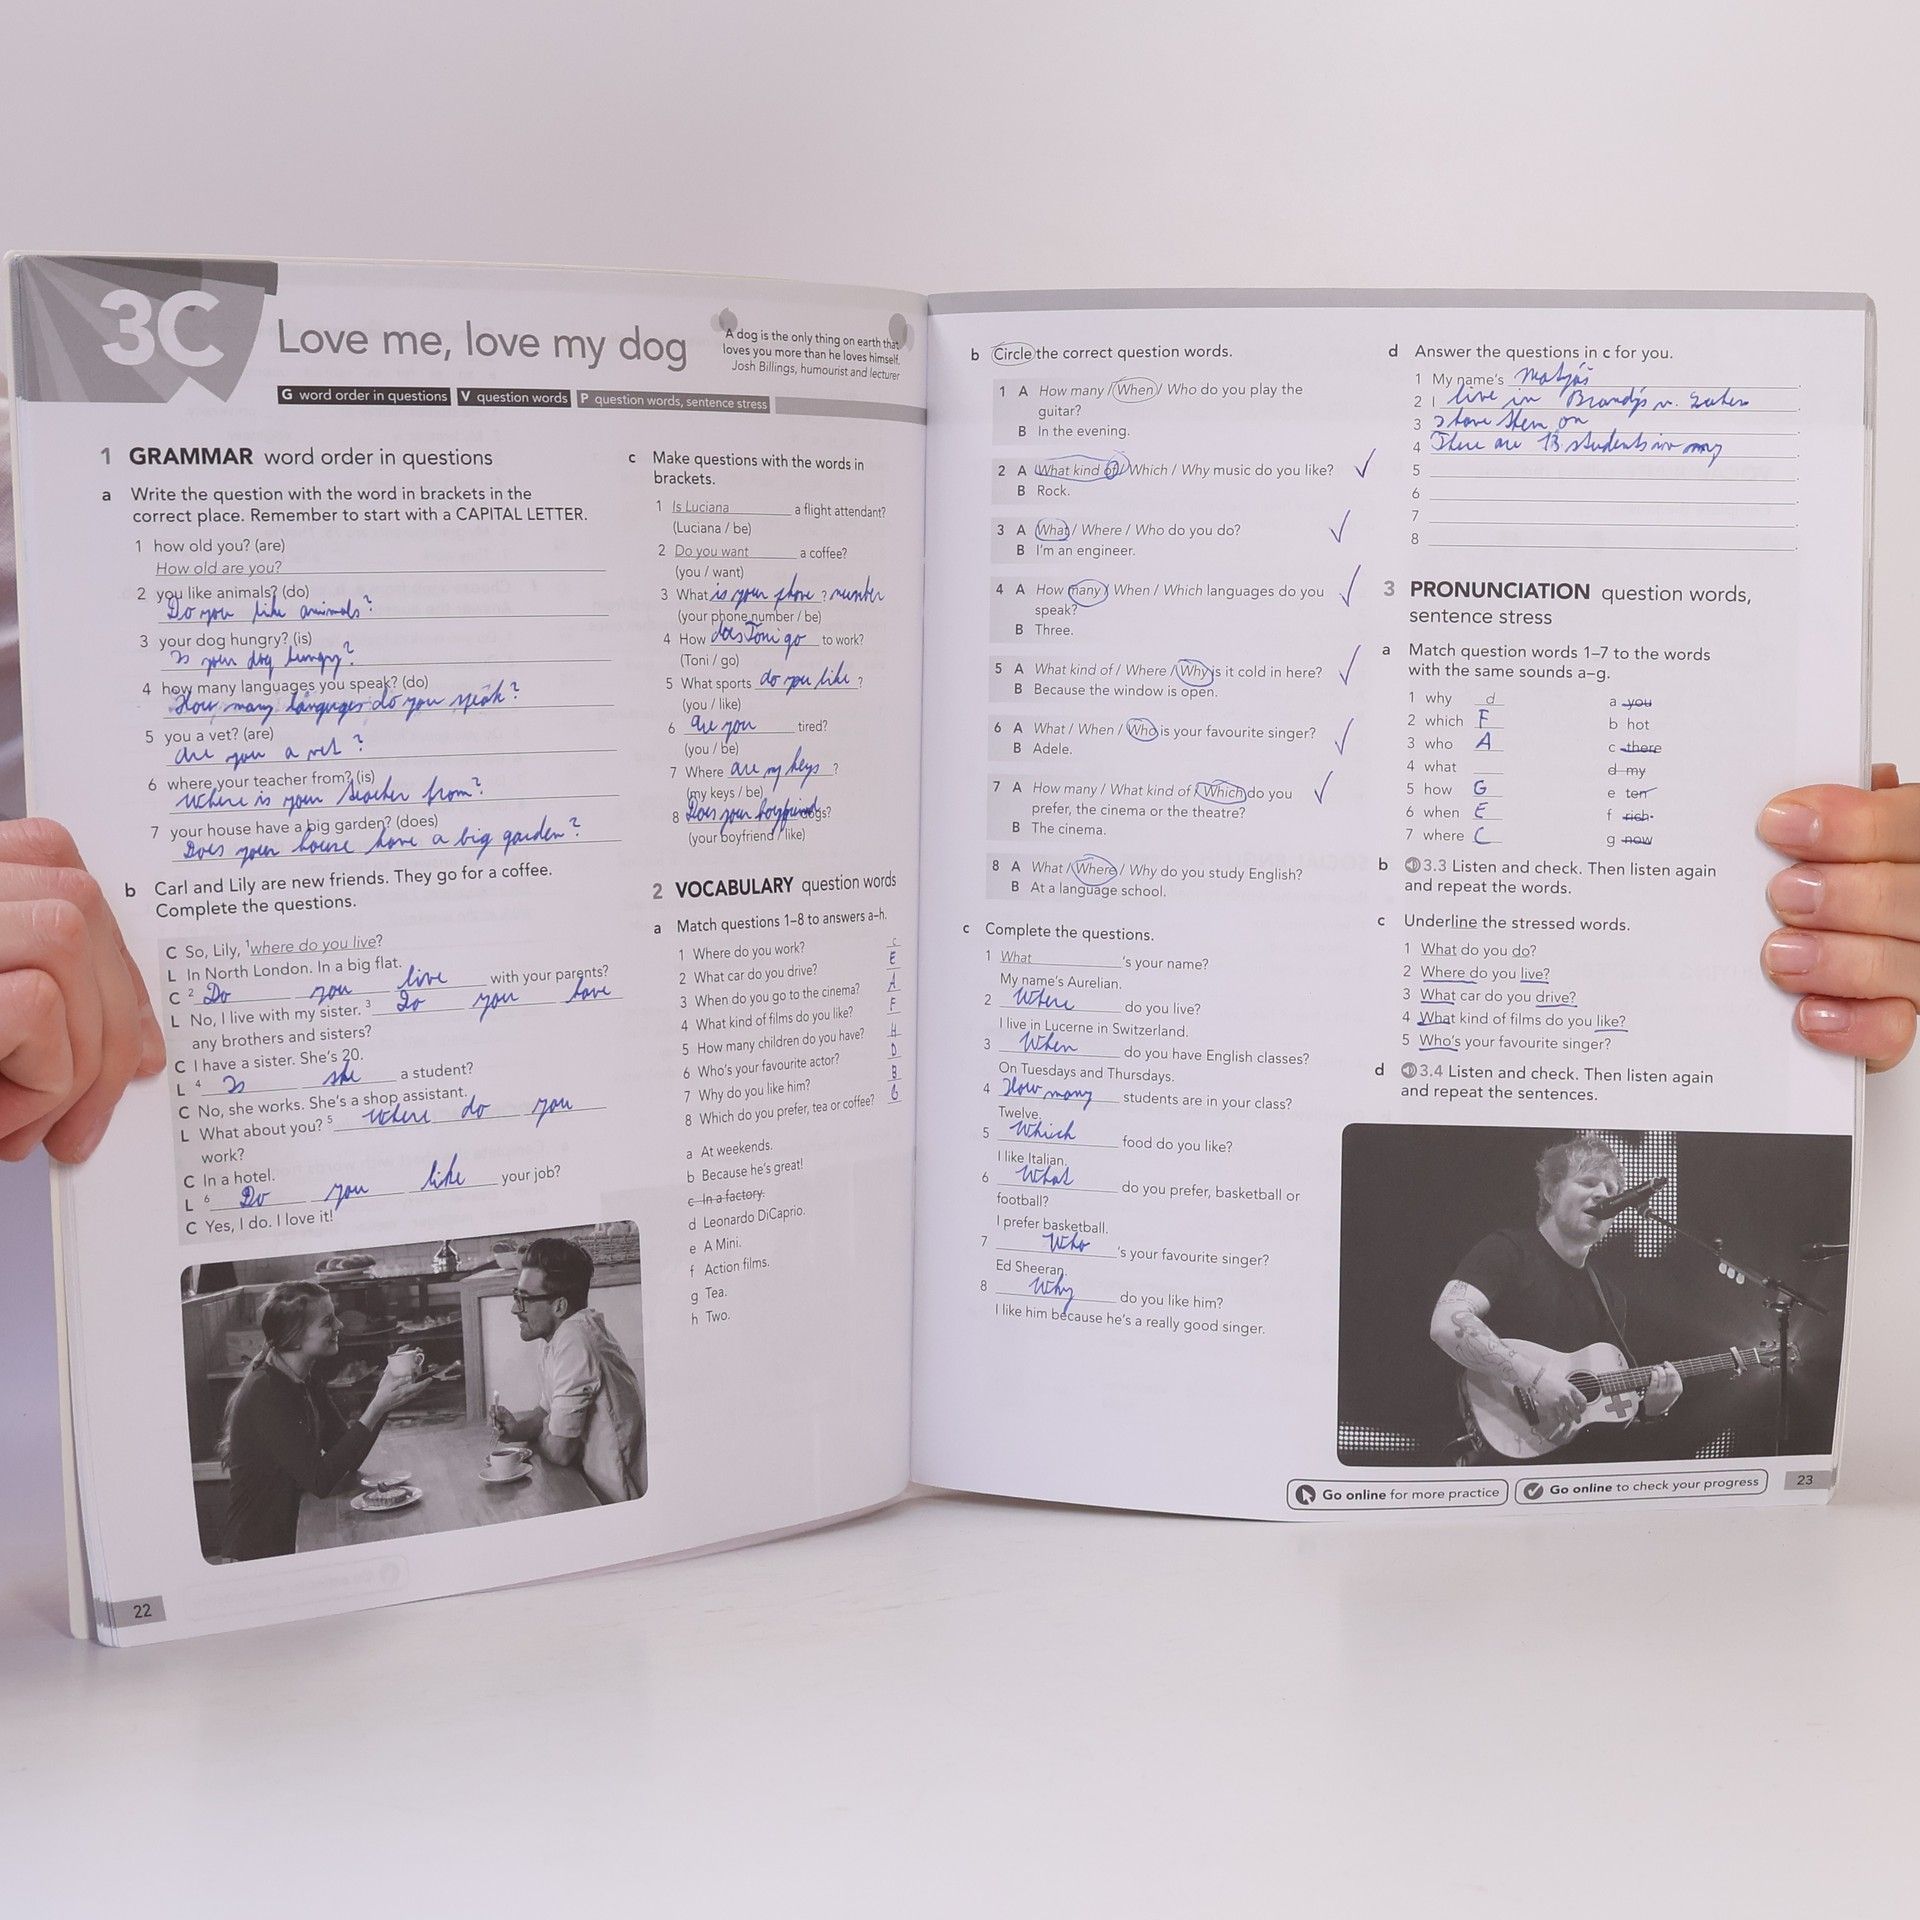 3C
Love me, love my dog
A dog is the only thing on earth that
loves you more than he loves himself.
Josh Billings, humourist and lecturer
G word order in questions V question words P question words, sentence stress
1 GRAMMAR word order in questions
a Write the question with the word in brackets in the
correct place. Remember to start with a CAPITAL LETTER.
1 how old you? (are)
How old are you?
2 you like animals? (do)
Do you like animals?
3 your dog hungry? (is)
Is your dog hungry?
4 how many languages you speak? (do)
How many languages do you speak?
5 you a vet? (are)
Are you a vet?
6 where your teacher from? (is)
Where is your teacher from?
7 your house have a big garden? (does)
Does your house have a big garden?
b Carl and Lily are new friends. They go for a coffee.
Complete the questions.
C So, Lily, 1 where do you live?
L In North London. In a big flat.
C 2 Do you live with your parents?
L No, I live with my sister. 3 Do you have
any brothers and sisters?
C I have a sister. She's 20.
L 4 Is she a student?
C No, she works. She's a shop assistant.
L What about you? 5 Where do you
work?
C In a hotel.
L 6 Do you like your job?
C Yes, I do. I love it!
22
c Make questions with the words in
brackets.
1 Is Luciana a flight attendant?
(Luciana / be)
2 Do you want a coffee?
(you / want)
3 What is your phone ? number
(your phone number / be)
4 How does Toni go to work?
(Toni / go)
5 What sports do you like ?
(you / like)
6 are you tired?
(you / be)
7 Where are my keys ?
(my keys / be)
8 Does your boyfriend dogs?
(your boyfriend / like)
2 VOCABULARY question words
a Match questions 1–8 to answers a–h.
1 Where do you work? c
2 What car do you drive? E
3 When do you go to the cinema? A
4 What kind of films do you like? F
5 How many children do you have? H
6 Who's your favourite actor? D
7 Why do you like him? B
8 Which do you prefer, tea or coffee? G
a At weekends.
b Because he's great!
c In a factory.
d Leonardo DiCaprio.
e A Mini.
f Action films.
g Tea.
h Two.
b Circle the correct question words.
1 A How many / When / Who do you play the
guitar?
B In the evening.
2 A What kind of / Which / Why music do you like?
B Rock.
3 A What / Where / Who do you do?
B I'm an engineer.
4 A How many / When / Which languages do you
speak?
B Three.
5 A What kind of / Where / Why is it cold in here?
B Because the window is open.
6 A What / When / Who is your favourite singer?
B Adele.
7 A How many / What kind of / Which do you
prefer, the cinema or the theatre?
B The cinema.
8 A What / Where / Why do you study English?
B At a language school.
c Complete the questions.
1 What 's your name?
My name's Aurelian.
2 Where do you live?
I live in Lucerne in Switzerland.
3 When do you have English classes?
On Tuesdays and Thursdays.
4 How many students are in your class?
Twelve.
5 Which food do you like?
I like Italian.
6 What do you prefer, basketball or
football?
I prefer basketball.
7 Who 's your favourite singer?
Ed Sheeran.
8 Why do you like him?
I like him because he's a really good singer.
d Answer the questions in c for you.
1 My name's Matyáš
2 I live in Brandýs n.
3 I have them on
4 There are 13 students in my
5
6
7
8
3 PRONUNCIATION question words,
sentence stress
a Match question words 1–7 to the words
with the same sounds a–g.
1 why d a you
2 which F b hot
3 who A c there
4 what d my
5 how G e ten
6 when E f rich
7 where C g now
b 3.3 Listen and check. Then listen again
and repeat the words.
c Underline the stressed words.
1 What do you do?
2 Where do you live?
3 What car do you drive?
4 What kind of films do you like?
5 Who's your favourite singer?
d 3.4 Listen and check. Then listen again
and repeat the sentences.
Go online for more practice Go online to check your progress 23